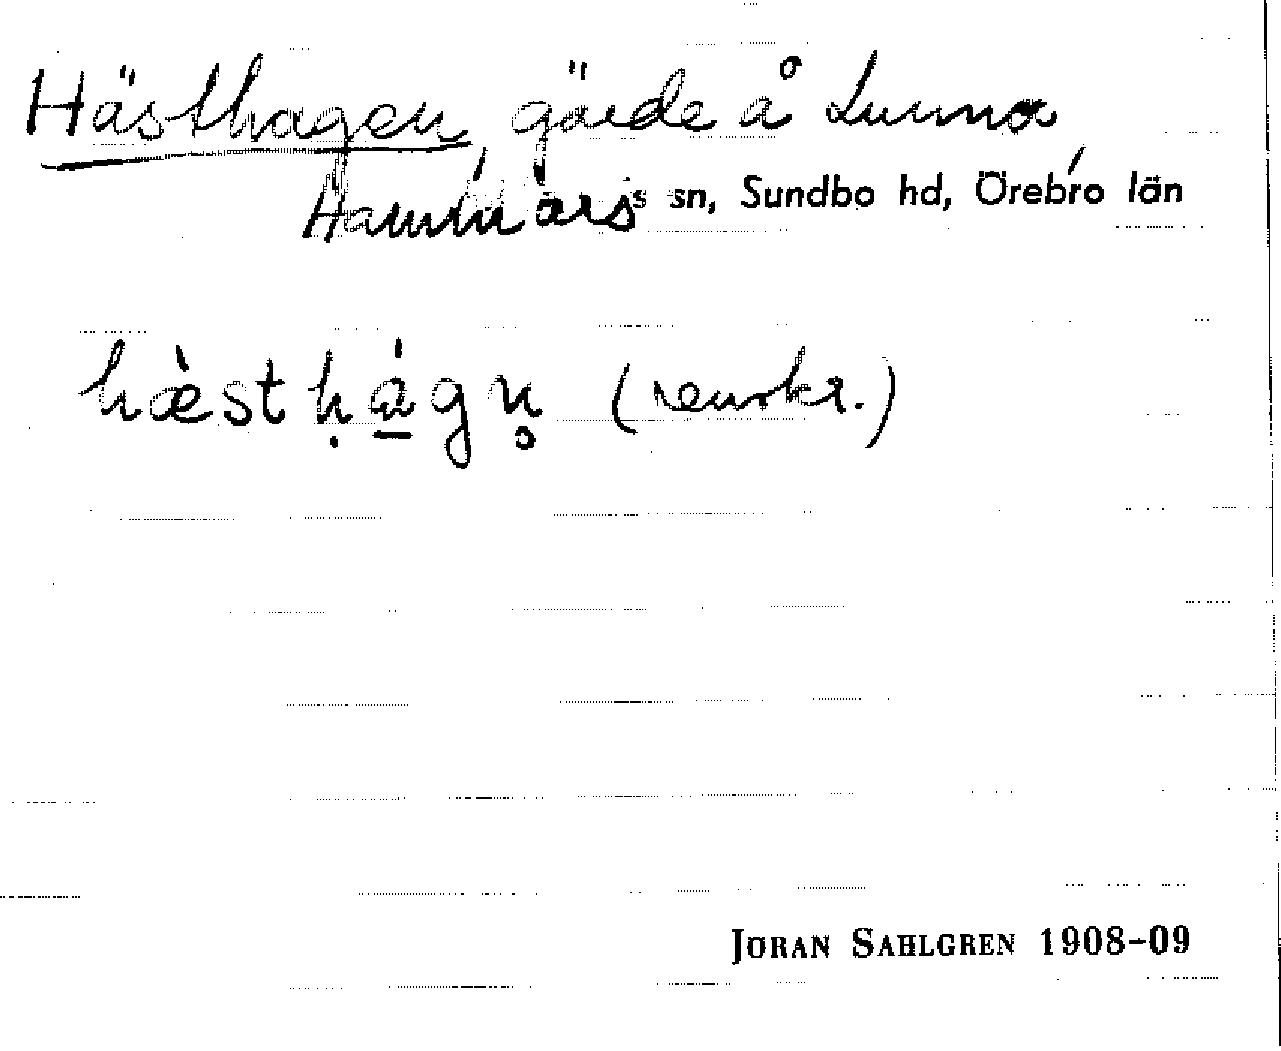 Hästhagen, gärde å Lunna
Hammars sn, Sundbo hd, Örebro län
hæ̀st ḥá̱gn̥ (renskr.)
JÖRAN SAHLGREN 1908-09